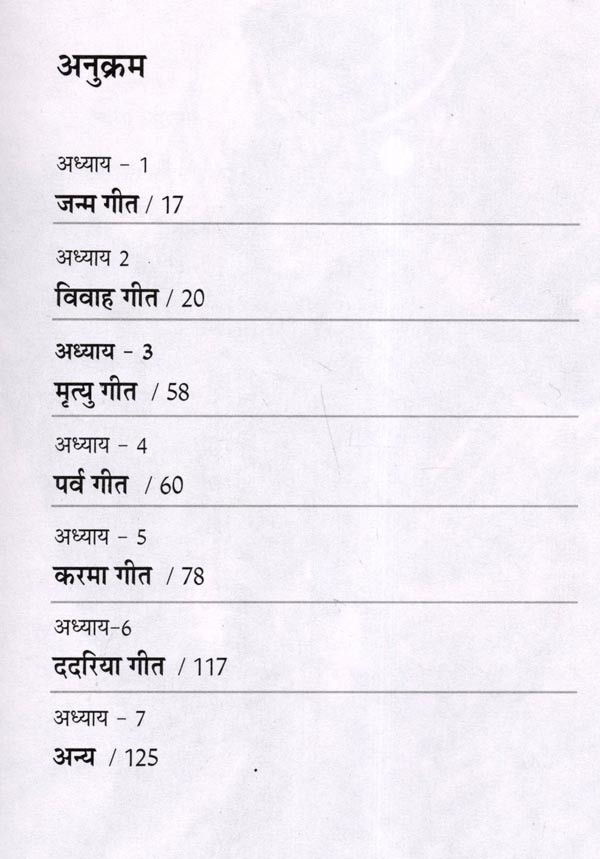 अनुक्रम
अध्याय - 1
जन्म गीत / 17
अध्याय 2
विवाह गीत / 20
अध्याय - 3
मृत्यु गीत / 58
अध्याय - 4
पर्व गीत / 60
अध्याय - 5
करमा गीत / 78
अध्याय-6
ददरिया गीत / 117
अध्याय - 7
अन्य / 125